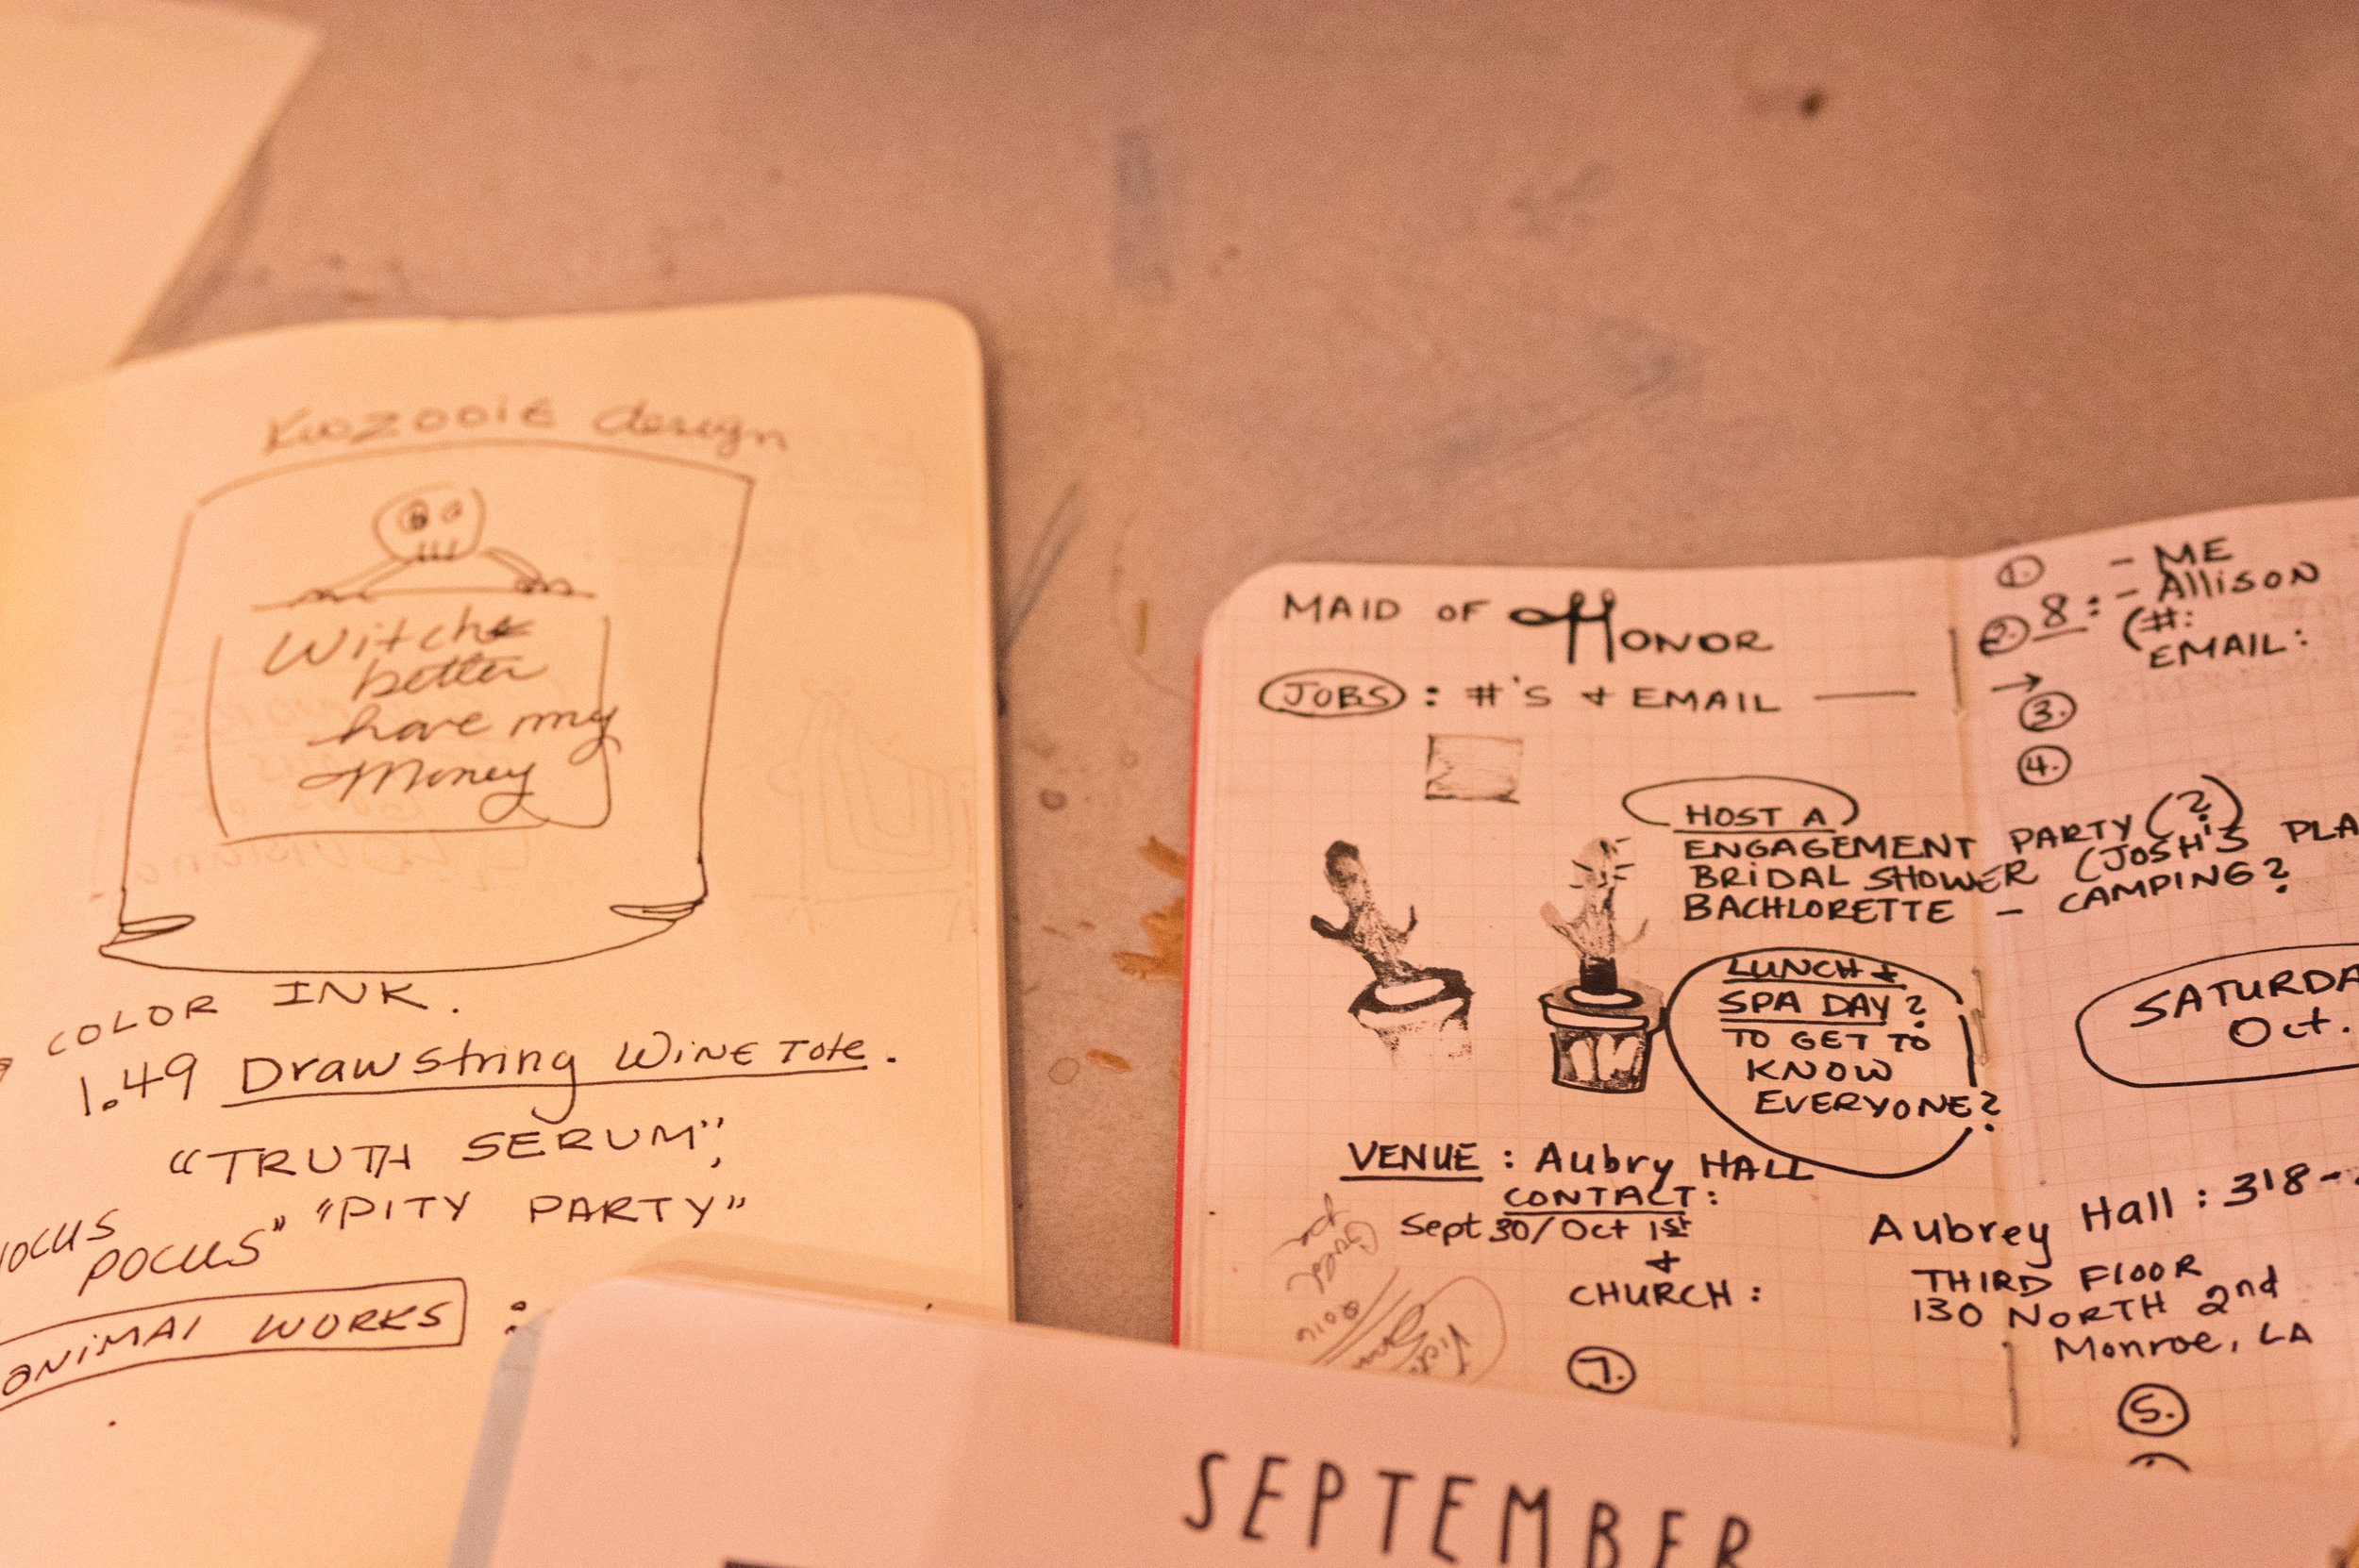 Kuzooie design
Witches
better
have my
Money
COLOR INK.
1.49 Drawstring WINE Tote.
"TRUTH SERUM",
"PITY PARTY"
POCUS"
ANIMAL WORKS :
MAID OF HONOR
JOBS : #'S + EMAIL
HOST A
ENGAGEMENT PARTY (?)
BRIDAL SHOWER (JOSH'S
BACHLORETTE - CAMPING?
LUNCH +
SPA DAY?
TO GET TO
KNOW
EVERYONE?
VENUE : Aubry HALL
CONTACT:
Sept 30/Oct 1st
+
CHURCH :
7.
1. - ME
2. 8 : - Allison
(#:
EMAIL:
→
3.
4.
Oct.
Aubrey Hall : 318-
THIRD FLOOR
130 NORTH 2nd
Monroe, LA
5.
SEPTEMBER